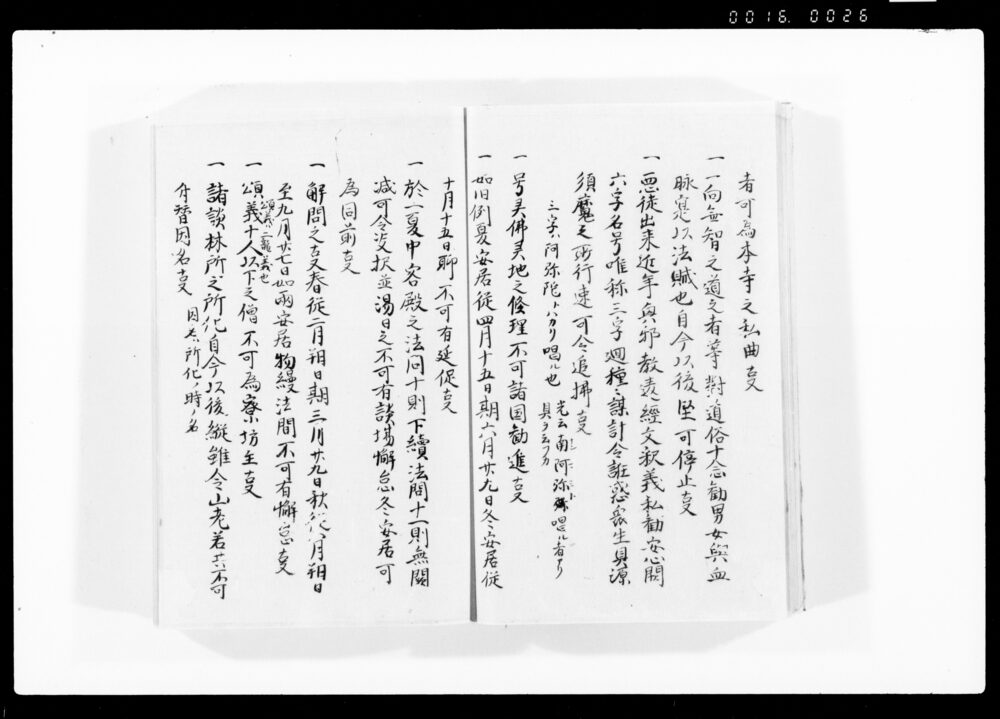 0016. 0026
者可為本寺之私曲㕝
一 一向無智之道心者等對道俗十念勧男女與血
脉寔以法賊也自今以後堅可停止㕝
一 悪徒出来近年與邪教違經文釈義私勧安心闕
六字名号唯称三字廻種々謀計令誑惑衆生具源
須魔之所行速可令追拂㕝
三字ハ阿弥陀トハカリ唱ル也 光云南阿弥ト唱ル者ヲ
具ヲ云フカ
一 号灵佛灵地之修理不可諸国勧進㕝
一 如旧例夏安居従四月十五日期六月廿九日冬安居従
十月十五日聊不可有延促㕝
一 於一夏中客殿之法问十則下續法問十一則無闕
减可令沙汰並湯日之不可有談場懈怠冬安居可
為同前㕝
一 解間之㕝春従二月朔日期三月廿九日秋従八月朔日
至九月廿七日如両安居物縵法問不可有懈怠㕝
一 頌義十人以下之僧不可為寮坊主㕝
頌義ハ二龍義也
一 諸談林所之所化自今以後縦雖令山老若共不可
付替因名㕝 因名所化ノ時ノ名